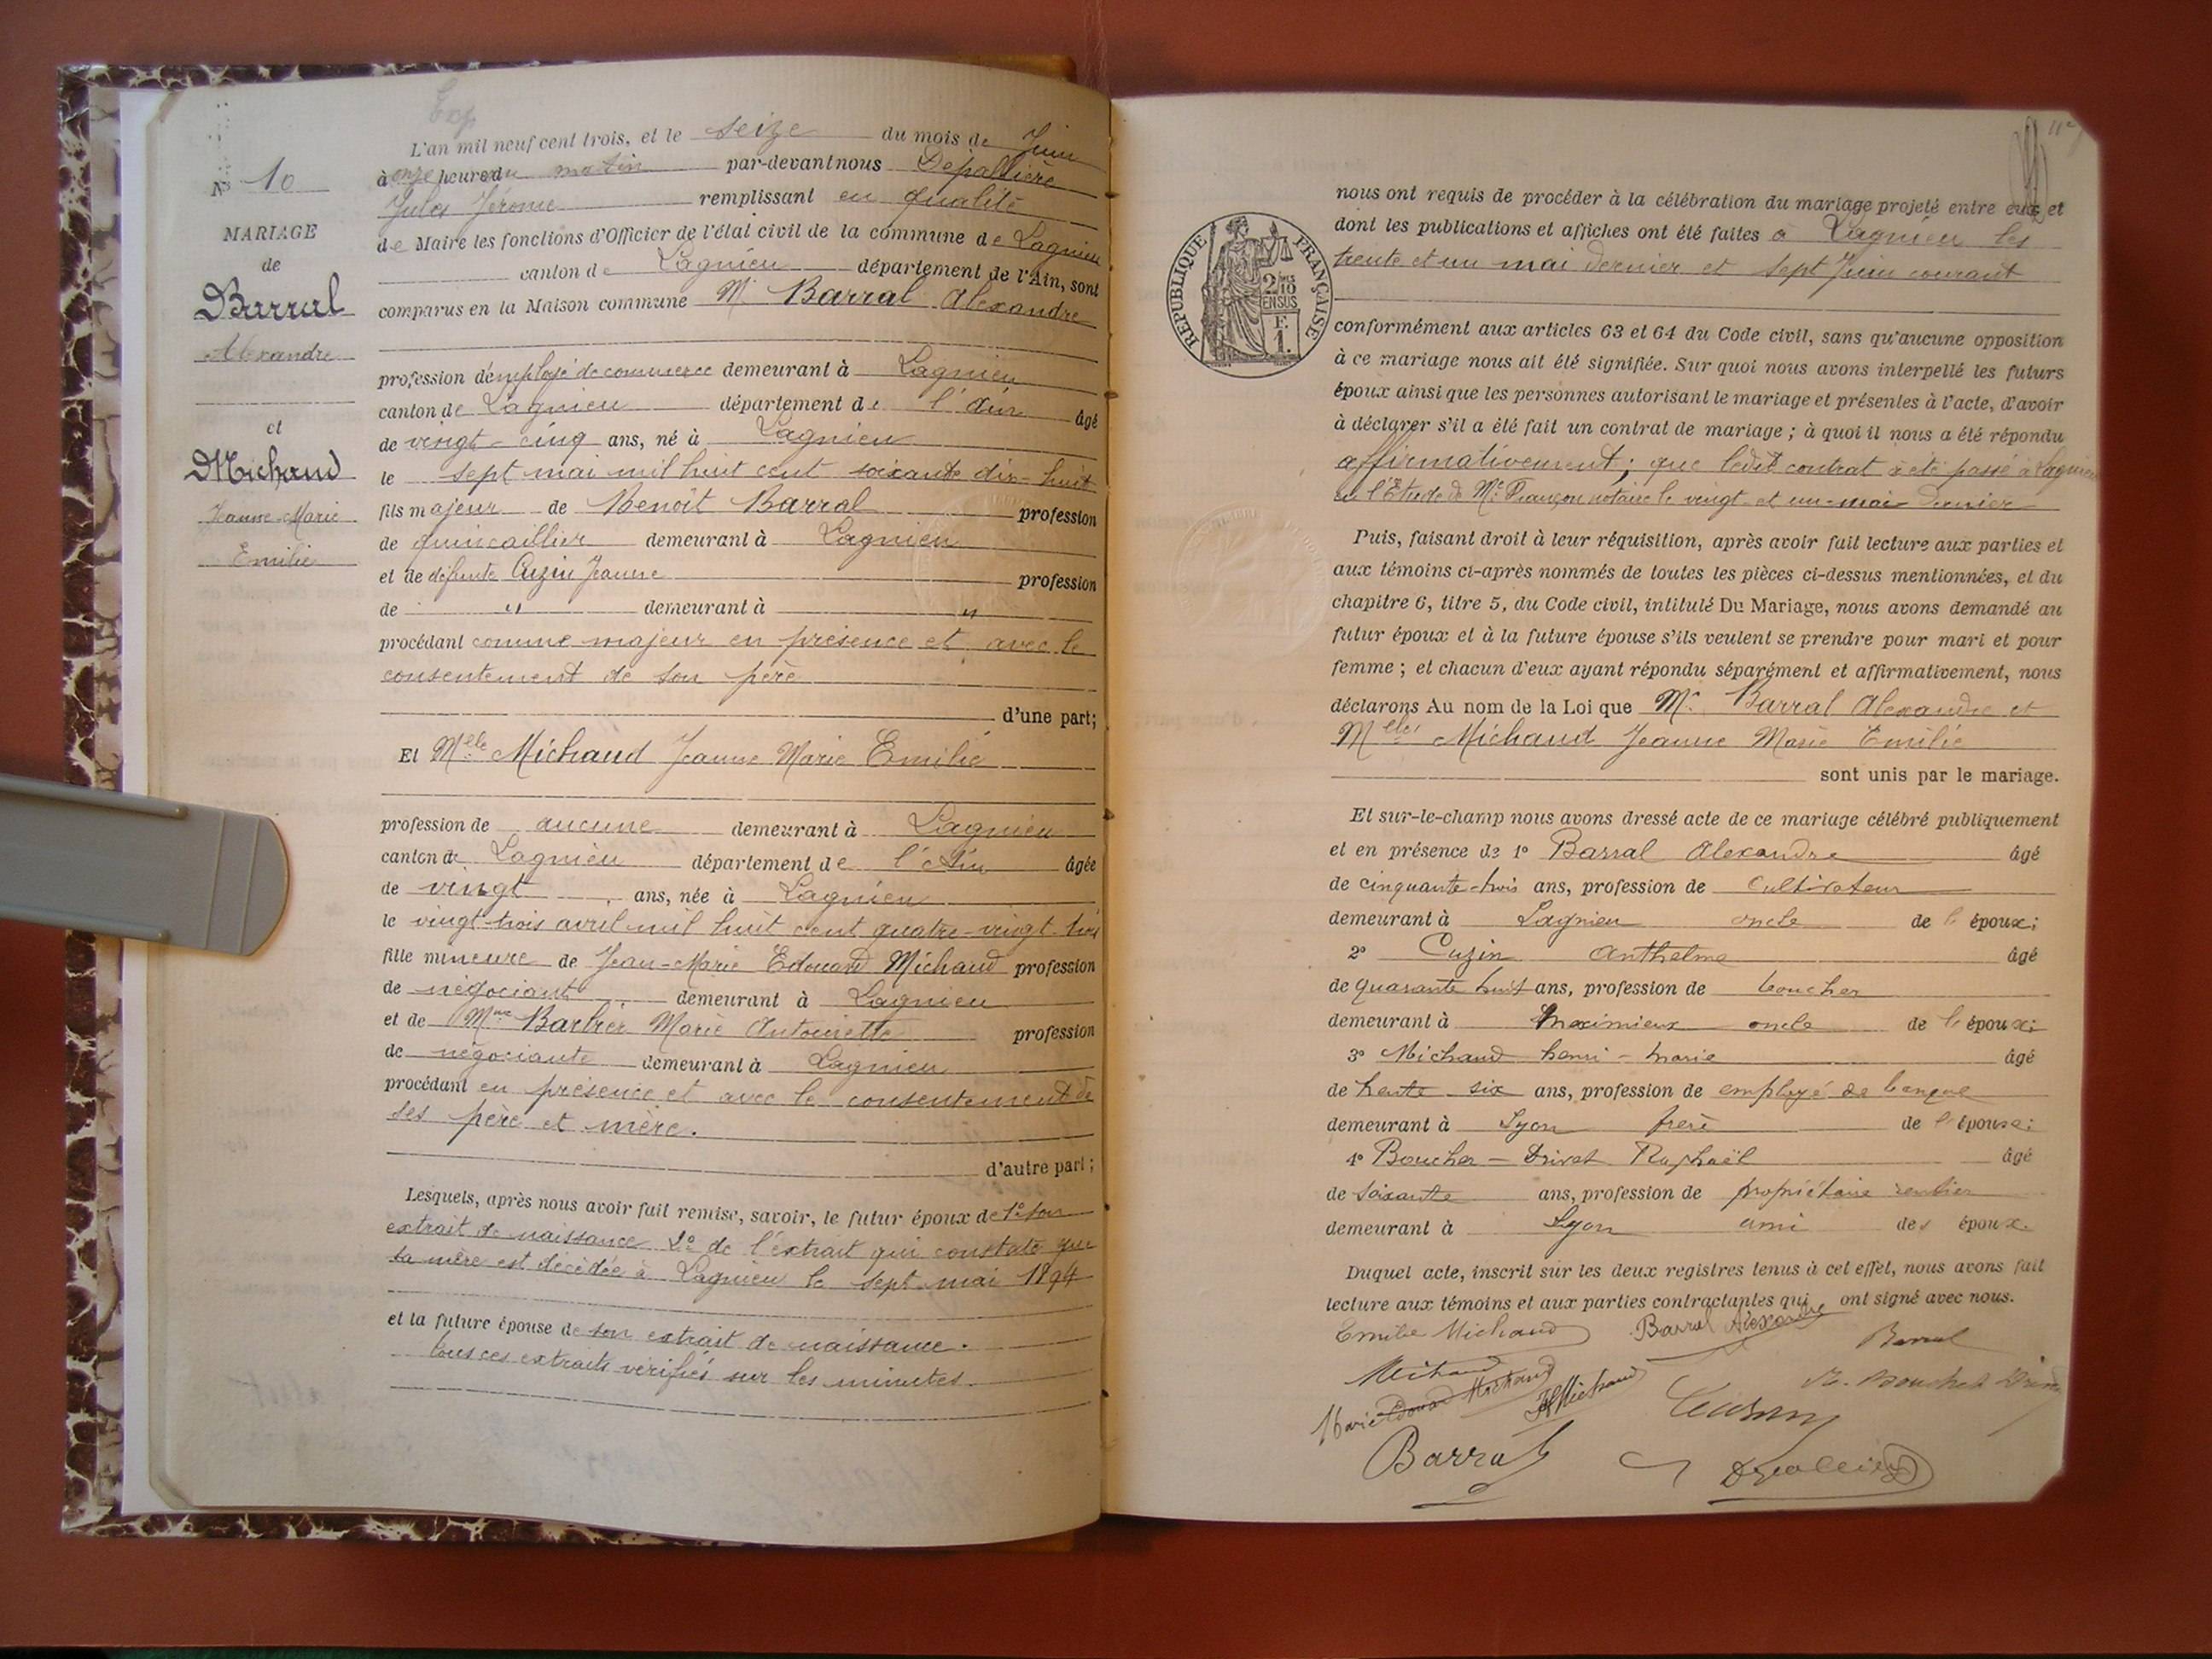 Exp
L'an mil neuf cent trois, et le seize du mois de Juin
à onze heures du matin par-devant nous Depallière
Jules Jérome remplissant en qualité
de Maire les fonctions d'Officier de l'état civil de la commune de Lagnieu
canton de Lagnieu département de l'Ain, sont
comparus en la Maison commune Mr Barral Alexandre
profession d'employé de commerce demeurant à Lagnieu
canton de Lagnieu département de l'Ain âgé
de vingt-cinq ans, né à Lagnieu
le sept mai mil huit cent soixante dix-huit
fils majeur de Benoît Barral profession
de quincaillier demeurant à Lagnieu
et de défunte Cuzin Jeanne profession
de " demeurant à "
procédant comme majeur en présence et avec le
consentement de son père
d'une part;
Et Melle Michaud Jeanne Marie Emilie
profession de aucune demeurant à Lagnieu
canton de Lagnieu département de l'Ain âgée
de vingt ans, née à Lagnieu
le vingt-trois avril mil huit cent quatre-vingt-trois
fille mineure de Jean-Marie Edouard Michaud profession
de négociant demeurant à Lagnieu
et de Mme Barbier Marie Antoinette profession
de négociante demeurant à Lagnieu
procédant en présence et avec le consentement de
ses père et mère.
d'autre part;
Lesquels, après nous avoir fait remise, savoir, le futur époux de 1° son
extrait de naissance 2° de l'extrait qui constate que
sa mère est décédée à Lagnieu le sept mai 1894
et la future épouse de son extrait de naissance.
tous ces extraits vérifiés sur les minutes
N° 10
MARIAGE
de
Barral
Alexandre
et
Michaud
Jeanne-Marie
Emilie
nous ont requis de procéder à la célébration du mariage projeté entre eux et
dont les publications et affiches ont été faites à Lagnieu les
trente et un mai dernier et sept Juin courant
RÉPUBLIQUE FRANÇAISE
2/10 EN SUS
F. 1.
conformément aux articles 63 et 64 du Code civil, sans qu'aucune opposition
à ce mariage nous ait été signifiée. Sur quoi nous avons interpellé les futurs
époux ainsi que les personnes autorisant le mariage et présentes à l'acte, d'avoir
à déclarer s'il a été fait un contrat de mariage ; à quoi il nous a été répondu
affirmativement ; que ledit contrat a été passé à Lagnieu
en l'Etude de Me Françon notaire le vingt et un mai dernier
Puis, faisant droit à leur réquisition, après avoir fait lecture aux parties et
aux témoins ci-après nommés de toutes les pièces ci-dessus mentionnées, et du
chapitre 6, titre 5, du Code civil, intitulé Du Mariage, nous avons demandé au
futur époux et à la future épouse s'ils veulent se prendre pour mari et pour
femme ; et chacun d'eux ayant répondu séparément et affirmativement, nous
déclarons Au nom de la Loi que Mr Barral Alexandre et
Melle Michaud Jeanne Marie Emilie
sont unis par le mariage.
Et sur-le-champ nous avons dressé acte de ce mariage célébré publiquement
et en présence de 1° Barral Alexandre âgé
de cinquante-trois ans, profession de Cultivateur
demeurant à Lagnieu oncle de l'époux;
2° Cuzin Anthelme âgé
de quarante huit ans, profession de boucher
demeurant à Meximieux oncle de l'époux;
3° Michaud henri-marie âgé
de trente six ans, profession de employé de banque
demeurant à Lyon frère de l'épouse;
4° Boucher-Drivet Raphaël âgé
de soixante ans, profession de propriétaire rentier
demeurant à Lyon ami des époux.
Duquel acte, inscrit sur les deux registres tenus à cet effet, nous avons fait
lecture aux témoins et aux parties contractantes qui ont signé avec nous.
Emilie Michaud Barral Alexandre Barral
Michaud
Marie Edouard Michaud HMichaud Cuzin
Barral Depallière